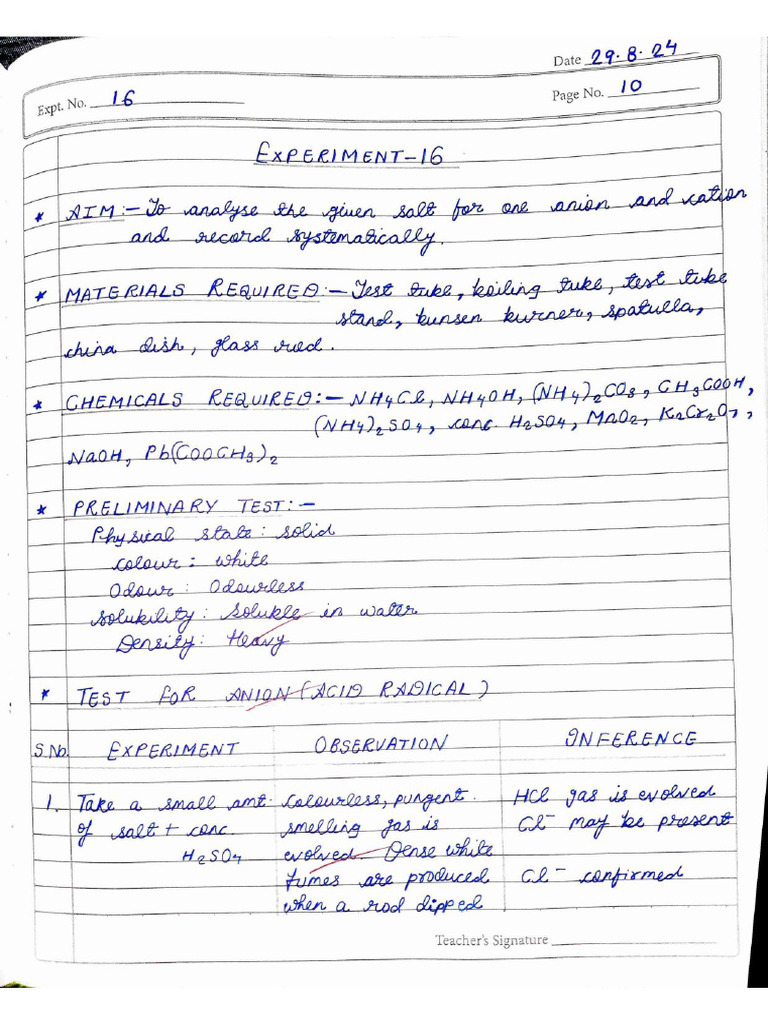 Date 29.8.24
Expt. No. 16
Page No. 10
EXPERIMENT-16
* AIM:- To analyse the given salt for one anion and cation
and record systematically.
* MATERIALS REQUIRED:- Test tube, boiling tube, test tube
stand, bunsen burner, spatulla,
china dish, glass rod.
* CHEMICALS REQUIRED:- NH4Cl, NH4OH, (NH4)2CO3, CH3COOH,
(NH4)2SO4, conc. H2SO4, MnO2, K2Cr2O7,
NaOH, Pb(COOCH3)2
* PRELIMINARY TEST:-
Physical state: solid
colour: white
Odour: Odourless
solubility: Soluble in water
Density: Heavy
* TEST FOR ANION (ACID RADICAL)
S.No. EXPERIMENT OBSERVATION INFERENCE
1. Take a small amt. colourless, pungent. HCl gas is evolved
of salt + conc. smelling gas is Cl- may be present
H2SO4 evolved. Dense white
fumes are produced Cl- confirmed
when a rod dipped
Teacher's Signature